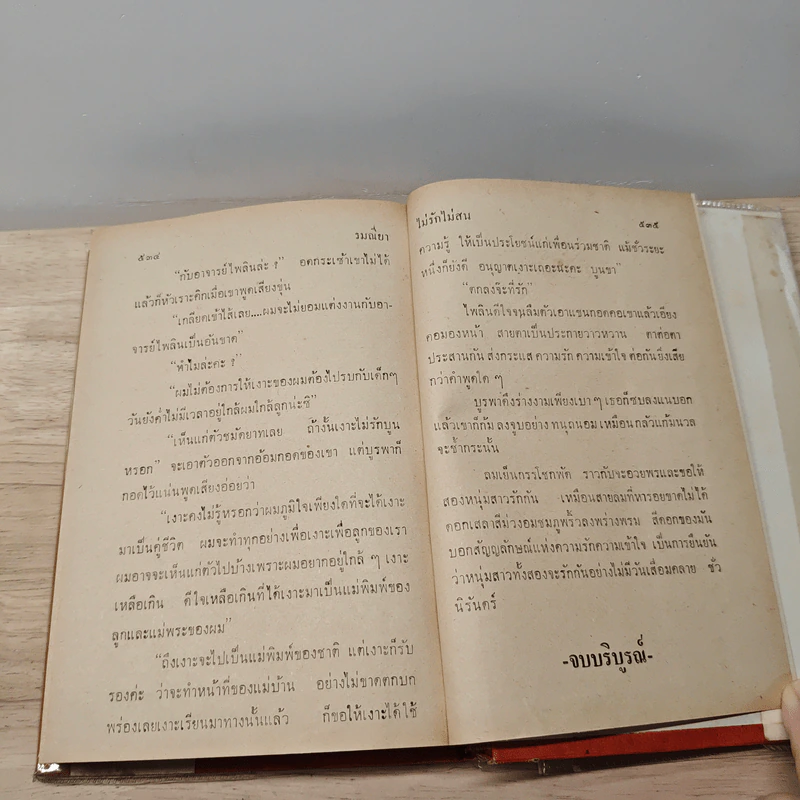 ๕๓๔ รมณียา
“กับอาจารย์ไพลินล่ะ ?” อดกระเซ้าเขาไม่ได้
แล้วก็หัวเราะคิกเมื่อเขาพูดเสียงขุ่น
“เกลียดเข้าไส้เลย....ผมจะไม่ยอมแต่งงานกับอา-
จารย์ไพลินเป็นอันขาด”
“ทำไมล่ะคะ ?”
“ผมไม่ต้องการให้เงาะของผมต้องไปรบกับเด็กๆ
วันยังค่ำไม่มีเวลาอยู่ใกล้ผมใกล้ลูกน่ะซิ”
“เห็นแก่ตัวชมัดยาทเลย ถ้างั้นเงาะไม่รักบูน
หรอก” จะเอาตัวออกจากอ้อมกอดของเขา แต่บูรพาก็
กอดไว้แน่นพูดเสียงอ่อยว่า
“เงาะคงไม่รู้หรอกว่าผมภูมิใจเพียงใดที่จะได้เงาะ
มาเป็นคู่ชีวิต ผมจะทำทุกอย่างเพื่อเงาะเพื่อลูกของเรา
ผมอาจจะเห็นแก่ตัวไปบ้างเพราะผมอยากอยู่ใกล้ ๆ เงาะ
เหลือเกิน ดีใจเหลือเกินที่ได้เงาะมาเป็นแม่พิมพ์ของ
ลูกและแม่พระของผม”
“ถึงเงาะจะไปเป็นแม่พิมพ์ของชาติ แต่เงาะก็รับ
รองค่ะ ว่าจะทำหน้าที่ของแม่บ้าน อย่างไม่ขาดตกบก
พร่องเลยเงาะเรียนมาทางนั้นแล้ว ก็ขอให้เงาะได้ใช้
ไม่รักไม่สน ๕๓๕
ความรู้ ให้เป็นประโยชน์แก่เพื่อนร่วมชาติ แม้ชั่วระยะ
หนึ่งก็ยังดี อนุญาตเงาะเถอะน๊ะคะ บูนขา”
“ตกลงจ๊ะที่รัก”
ไพลินดีใจจนลืมตัวเอาแขนกอดคอเขาแล้วเอียง
คอมองหน้า สายตาเป็นประกายวาวหวาน ตาต่อตา
ประสานกัน ส่งกระแส ความรัก ความเข้าใจ ต่อกันยิ่งเสีย
กว่าคำพูดใด ๆ
บูรพาดึงร่างงามเพียงเบา ๆ เธอก็ซบลงแนบอก
แล้วเขาก็ก้ม ลงจูบอย่าง ทนุถนอม เหมือน กลัวแก้มนวล
จะช้ำกระนั้น
ลมเย็นกรรโชกพัด ราวกับจะอวยพรและขอให้
สองหนุ่มสาวรักกัน เหมือนสายลมที่หารอยขาดไม่ได้
ดอกเสลาสีม่วงอมชมภูพริ้วลงพร่างพรม สีดอกของมัน
บอกสัญญลักษณ์แห่งความรักความเข้าใจ เป็นการยืนยัน
ว่าหนุ่มสาวทั้งสองจะรักกันอย่างไม่มีวันเสื่อมคลาย ชั่ว
นิรันดร์
-จบบริบูรณ์-